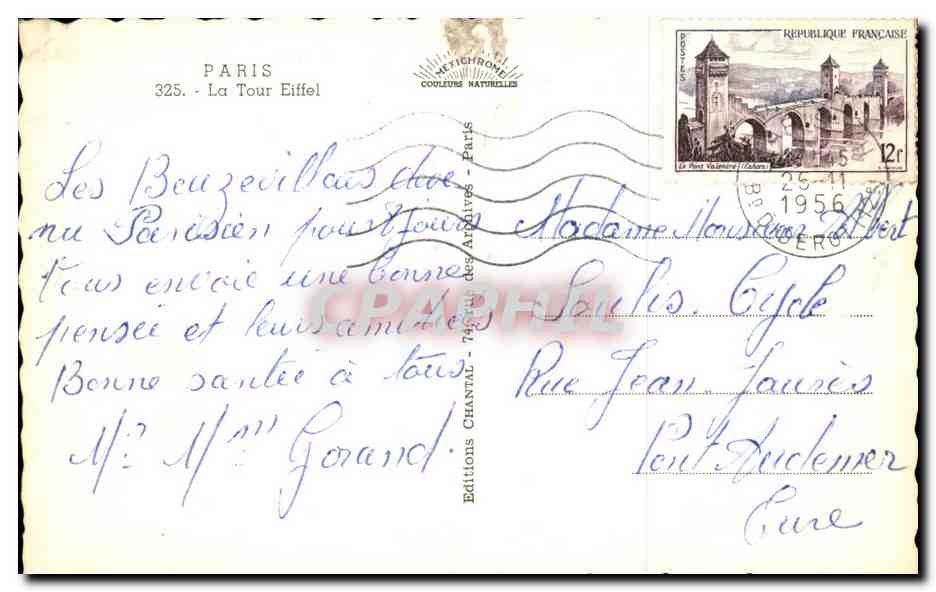 PARIS
325. - La Tour Eiffel
MEXICHROME
COULEURS NATURELLES
Les Beuzevillais deve
nu Parisien pour 8 jours
Vous envoie une bonne
pensée et leurs amitiées
Bonne santée à tous
Mr Mme Gorand.
Editions CHANTAL - 74, rue des Archives - Paris
POSTES
REPUBLIQUE FRANÇAISE
Le Pont Valentré (Cahors)
12f
45
26-11
1956
Bd DIDEROT
Madame Monsieur Albert
Soulis Cycle
Rue Jean Jaurès
Pont Audemer
Eure
CPAPHIL